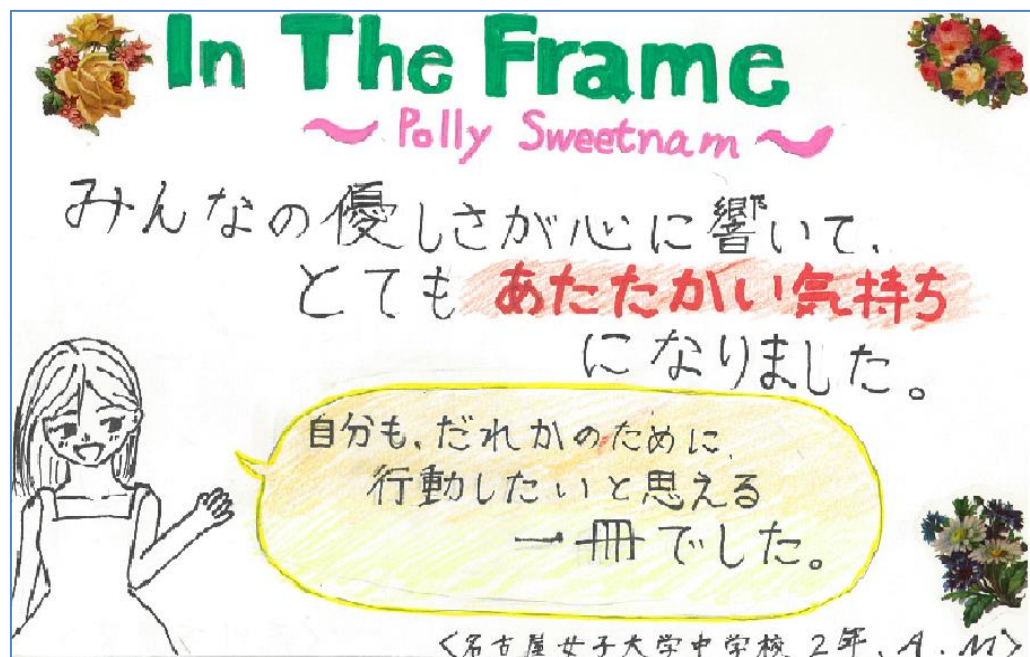 In The Frame
～ Polly Sweetnam ～
みんなの優しさが心に響いて、
とても あたたかい気持ち
になりました。
自分も、だれかのために、
行動したいと思える
一冊でした。
<名古屋女子大学中学校 2年、A.M>